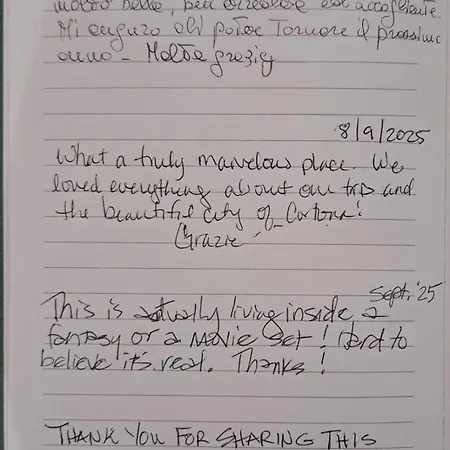 molto bello, ben arredato ed accogliente.
Mi auguro di poter tornare il prossimo
anno - Molte grazie
8/9/2025
What a truly marvelous place. We
loved everything about our trip and
the beautiful city of Cortona!
Grazie
Sept. '25
This is actually living inside a
fantasy or a movie set! Hard to
believe it's real. Thanks!
THANK YOU FOR SHARING THIS